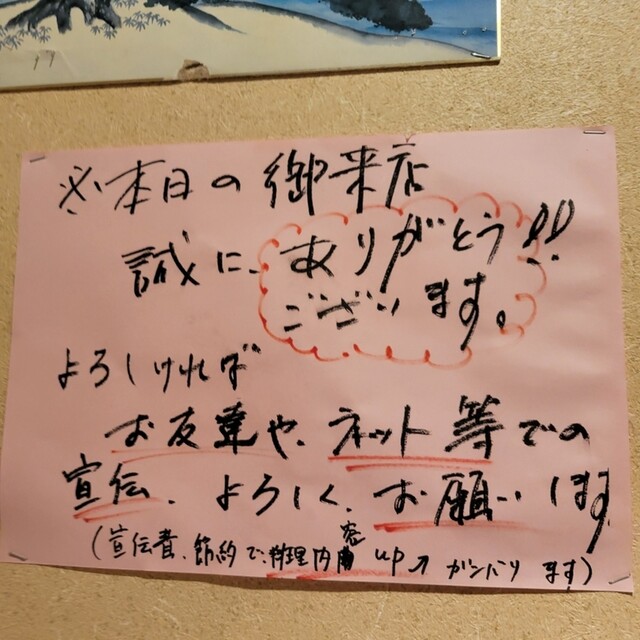 ※本日の御来店
誠に、ありがとう!!
ございます。
よろしければ
お友達や、ネット等での
宣伝、よろしく、お願いします
(宣伝者、節約で、料理内容up↗ガンバります)